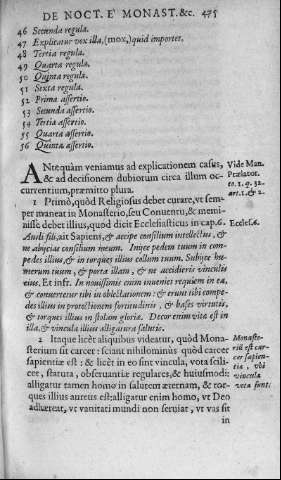 DE NOCT. E' MONAST. &c. 475
46 Secunda regula.
47 Explicatur vox illa, (mox,) quid importet.
48 Tertia regula.
49 Quarta regula.
50 Quinta regula.
51 Sexta regula.
52 Prima assertio.
53 Secunda assertio.
54 Tertia assertio.
55 Quarta assertio.
56 Quinta assertio.
ANtequàm veniamus ad explicationem casus,
& ad decisionem dubiorum circa illum oc-
currentium, præmitto plura.
Vide Man.
Prælator.
to. 1. q. 32.
art. 1. & 2.
1 Primò, quòd Religiosus debet curare, vt sem-
per maneat in Monasterio, seu Conuentu, & memi-
nisse debet illius, quod dicit Ecclesiasticus in cap. 6.
Ecclesiæ.
Audi fili, ait Sapiens, & accipe consilium intellectus, &
ne abijcias consilium meum. Inijce pedem tuum in com-
pedes illius, & in torques illius collum tuum. Subijce hu-
merum tuum, & porta illam, & ne accidieris vinculis
eius. Et infr. In nouissimis enim inuenies requiem in ea,
& conuertetur tibi in oblectationem: & erunt tibi compe-
des illius in protectionem fortitudinis, & bases virtutis,
& torques illius in stolam gloriæ. Decor enim vitæ est in
illa, & vincula illius alligatura salutis.
2 Itaque licèt aliquibus videatur, quòd Mona-
sterium sit carcer: sciant nihilominus quòd carcer
sapientiæ est: & licèt in eo sint vincula, vota scili-
cet, statuta, obseruantiæ regulares, & huiusmodi:
alligatur tamen homo in salutem æternam, & tor-
ques illius aureus est: alligatur enim homo, vt Deo
adhæreat, vt vanitati mundi non seruiat, vt vas sit
Monaste-
riū est car-
cer sapien-
tiæ, vbi
vincula
vota sunt.
in